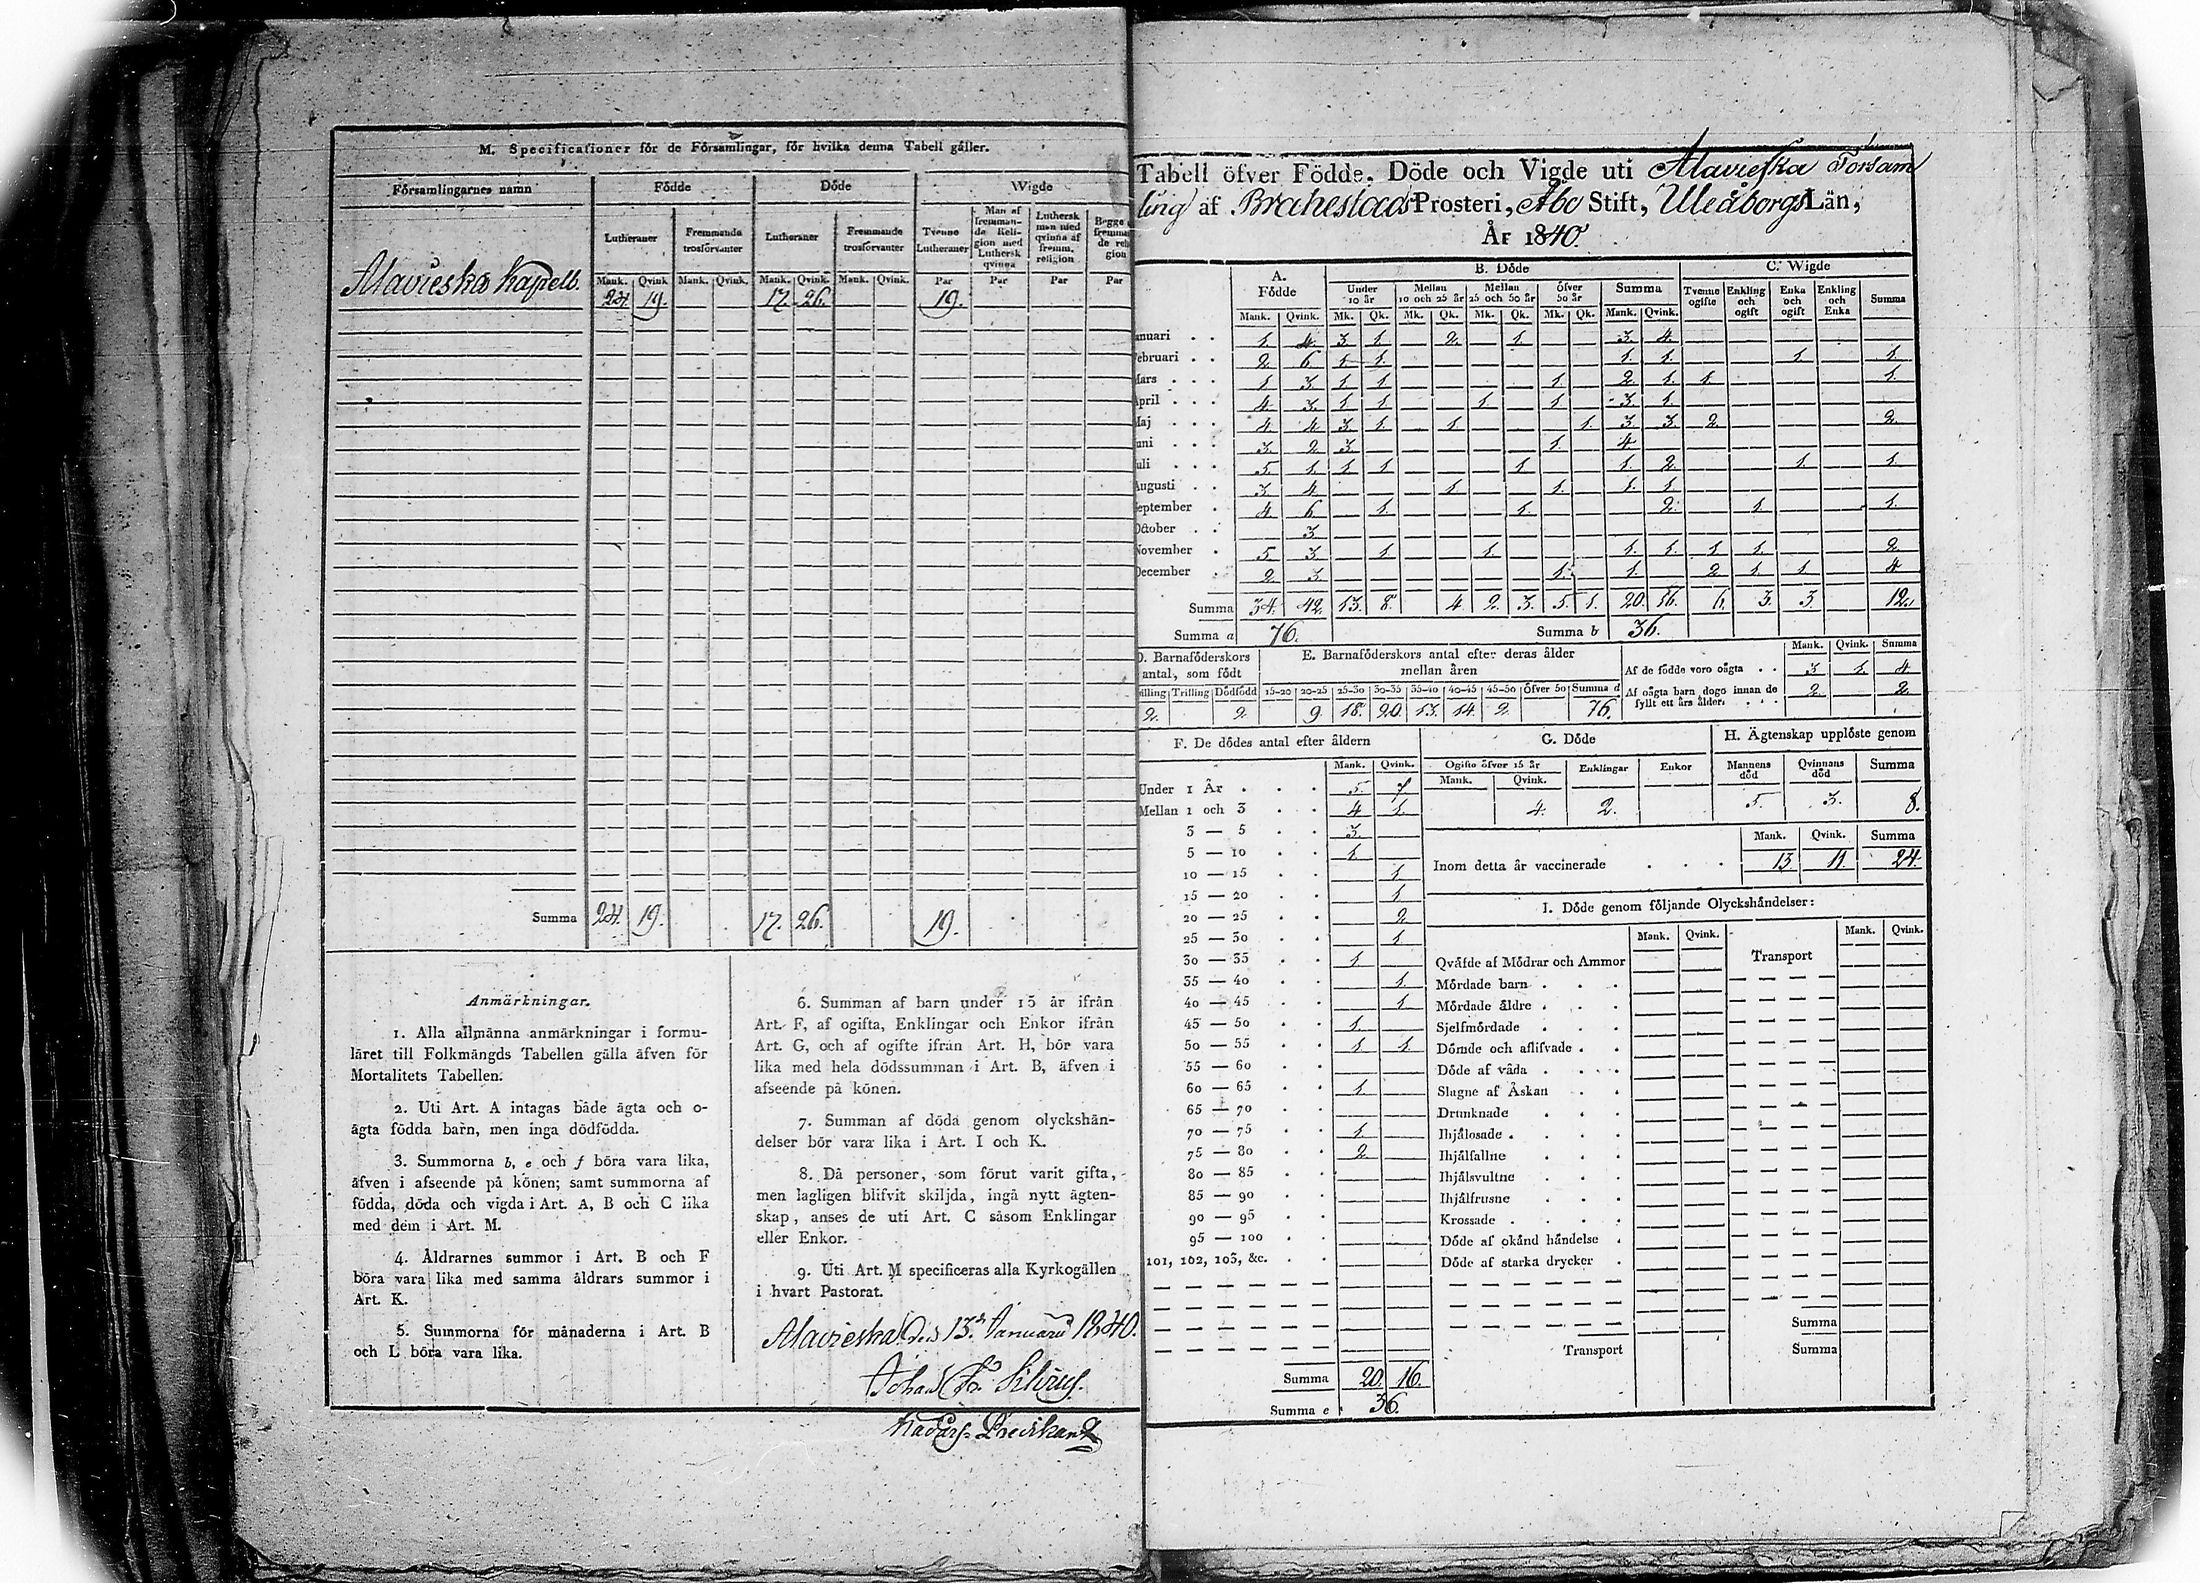 M. Specificationer för de Församlingar, för hvilka denna Tabell gäller.
Församlingarnes namn Födde Döde Wigde
Lutheraner Fremmande trosförvanter Lutheraner Fremmande trosförvanter Tvenne Lutheraner Man af fremmande Religion med Luthersk qvinna Luthersk man med qvinna af fremm. religion Begge
Mank. Qvink. Mank. Qvink. Mank. Qvink. Mank. Qvink. Par Par Par Par
Alavieska Kapell. 24. 19. 17. 26. 19.
Summa 24. 19. 17. 26. 19.
Anmärkningar.
1. Alla allmänna anmärkningar i formu-
läret till Folkmängds Tabellen gälla äfven för
Mortalitets Tabellen.
2. Uti Art. A intagas både ägta och o-
ägta födda barn, men inga dödfödda.
3. Summorna b, e och f böra vara lika,
äfven i afseende på könen; samt summorna af
födda, döda och vigda i Art. A, B och C lika
med dem i Art. M.
4. Åldrarnes summor i Art. B och F
böra vara lika med samma åldrars summor i
Art. K.
5. Summorna för månaderna i Art. B
och L böra vara lika.
6. Summan af barn under 15 år ifrån
Art. F, af ogifta, Enklingar och Enkor ifrån
Art. G, och af ogifte ifrån Art. H, bör vara
lika med hela dödssumman i Art. B, äfven i
afseende på könen.
7. Summan af döda genom olyckshän-
delser bör vara lika i Art. I och K.
8. Då personer, som förut varit gifta,
men lagligen blifvit skiljda, ingå nytt ägten-
skap, anses de uti Art. C såsom Enklingar
eller Enkor.
9. Uti Art. M specificeras alla Kyrkogällen
i hvart Pastorat.
Alavieska den 13. Januari 1840.
Johan Fr.
Predikant
Tabell öfver Födde, Döde och Vigde uti Alavieska Församl
ling af Brahestads Prosteri, Åbo Stift, Uleåborgs Län,
År 1840.
A. Födde B. Döde C. Wigde
Under 10 år Mellan 10 och 25 år Mellan 25 och 50 år Öfver 50 år Summa Tvenne ogifte Enkling och ogift Enka och ogift Enkling och Enka Summa
Mank. Qvink. Mk. Qk. Mk. Qk. Mk. Qk. Mk. Qk. Mank. Qvink.
anuari 1. 4. 3. 1. 2. 1. 3. 4.
ebruari 2. 6. 1. 1. 1. 1. 1. 1.
Mars 1. 3. 1. 1. 1. 2. 1. 1. 1.
April 4. 3. 1. 1. 1. 1. 3. 1.
Maj 4. 4. 3. 1. 1. 1. 3. 3. 2. 2.
uni 3. 2. 3. 1. 4.
uli 5. 1. 1. 1. 1. 1. 2. 1. 1.
Augusti 3. 4. 1. 1. 1. 1.
eptember 4. 6. 1. 1. 2. 1. 1.
October 3.
November 5. 3. 1. 1. 1. 1. 1. 1. 2.
December 2. 3. 1. 1. 2. 1. 1. 4
Summa 34. 42. 13. 8. 4. 2. 3. 5. 1. 20. 16. 6. 3. 3. 12.
Summa a 76. Summa b 36.
D. Barnaföderskors antal, som födt
illing Trilling Dödfödd
2. 2.
E. Barnaföderskors antal efter deras ålder mellan åren
15-20 20-25 25-30 30-35 35-40 40-45 45-50 Öfver 50 Summa d
9. 18. 20. 13. 14. 2. 76.
Mank. Qvink. Summa
Af de födde voro oägta 3 1. 4
Af oägta barn dogo innan de fyllt ett års ålder 2. 2.
F. De dödes antal efter åldern
Mank. Qvink.
Under 1 År 5. 7
Mellan 1 och 3 4 1.
3 — 5 3.
5 — 10 1
10 — 15 1
15 — 20 1
20 — 25 2
25 — 30 1
30 — 35 1
35 — 40 1.
40 — 45 1
45 — 50 1.
50 — 55 1 1.
55 — 60
60 — 65 1.
65 — 70
70 — 75 1.
75 — 80 2.
80 — 85
85 — 90
90 — 95
95 — 100
101, 102, 103, &c.
Summa 20. 16.
Summa e 36.
G. Döde
Ogifte öfver 15 år Enklingar Enkor
Mank. Qvink.
4. 2.
H. Ägtenskap upplöste genom
Mannens död Qvinnans död Summa
5. 3. 8.
Mank. Qvink. Summa
Inom detta år vaccinerade 13. 11. 24.
I. Döde genom följande Olyckshändelser:
Mank. Qvink. Mank. Qvink.
Qväfde af Mödrar och Ammor Transport
Mördade barn
Mördade äldre
Sjelfmördade
Dömde och aflifvade
Döde af våda
Slagne af Åskan
Drunknade
Ihjälosade
Ihjälfallne
Ihjälsvultne
Ihjälfrusne
Krossade
Döde af okänd händelse
Döde af starka drycker
Summa
Transport Summa